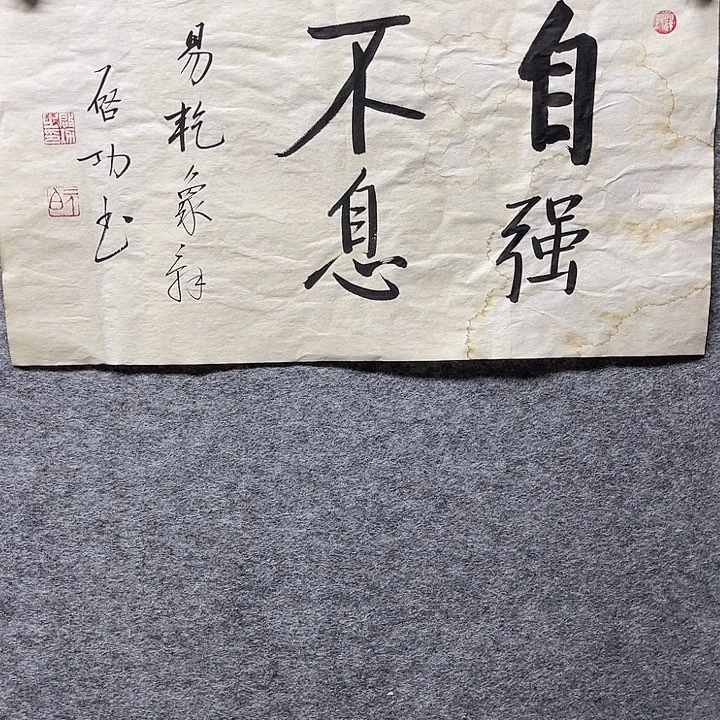 自强
不息
易乾象辞
启功书